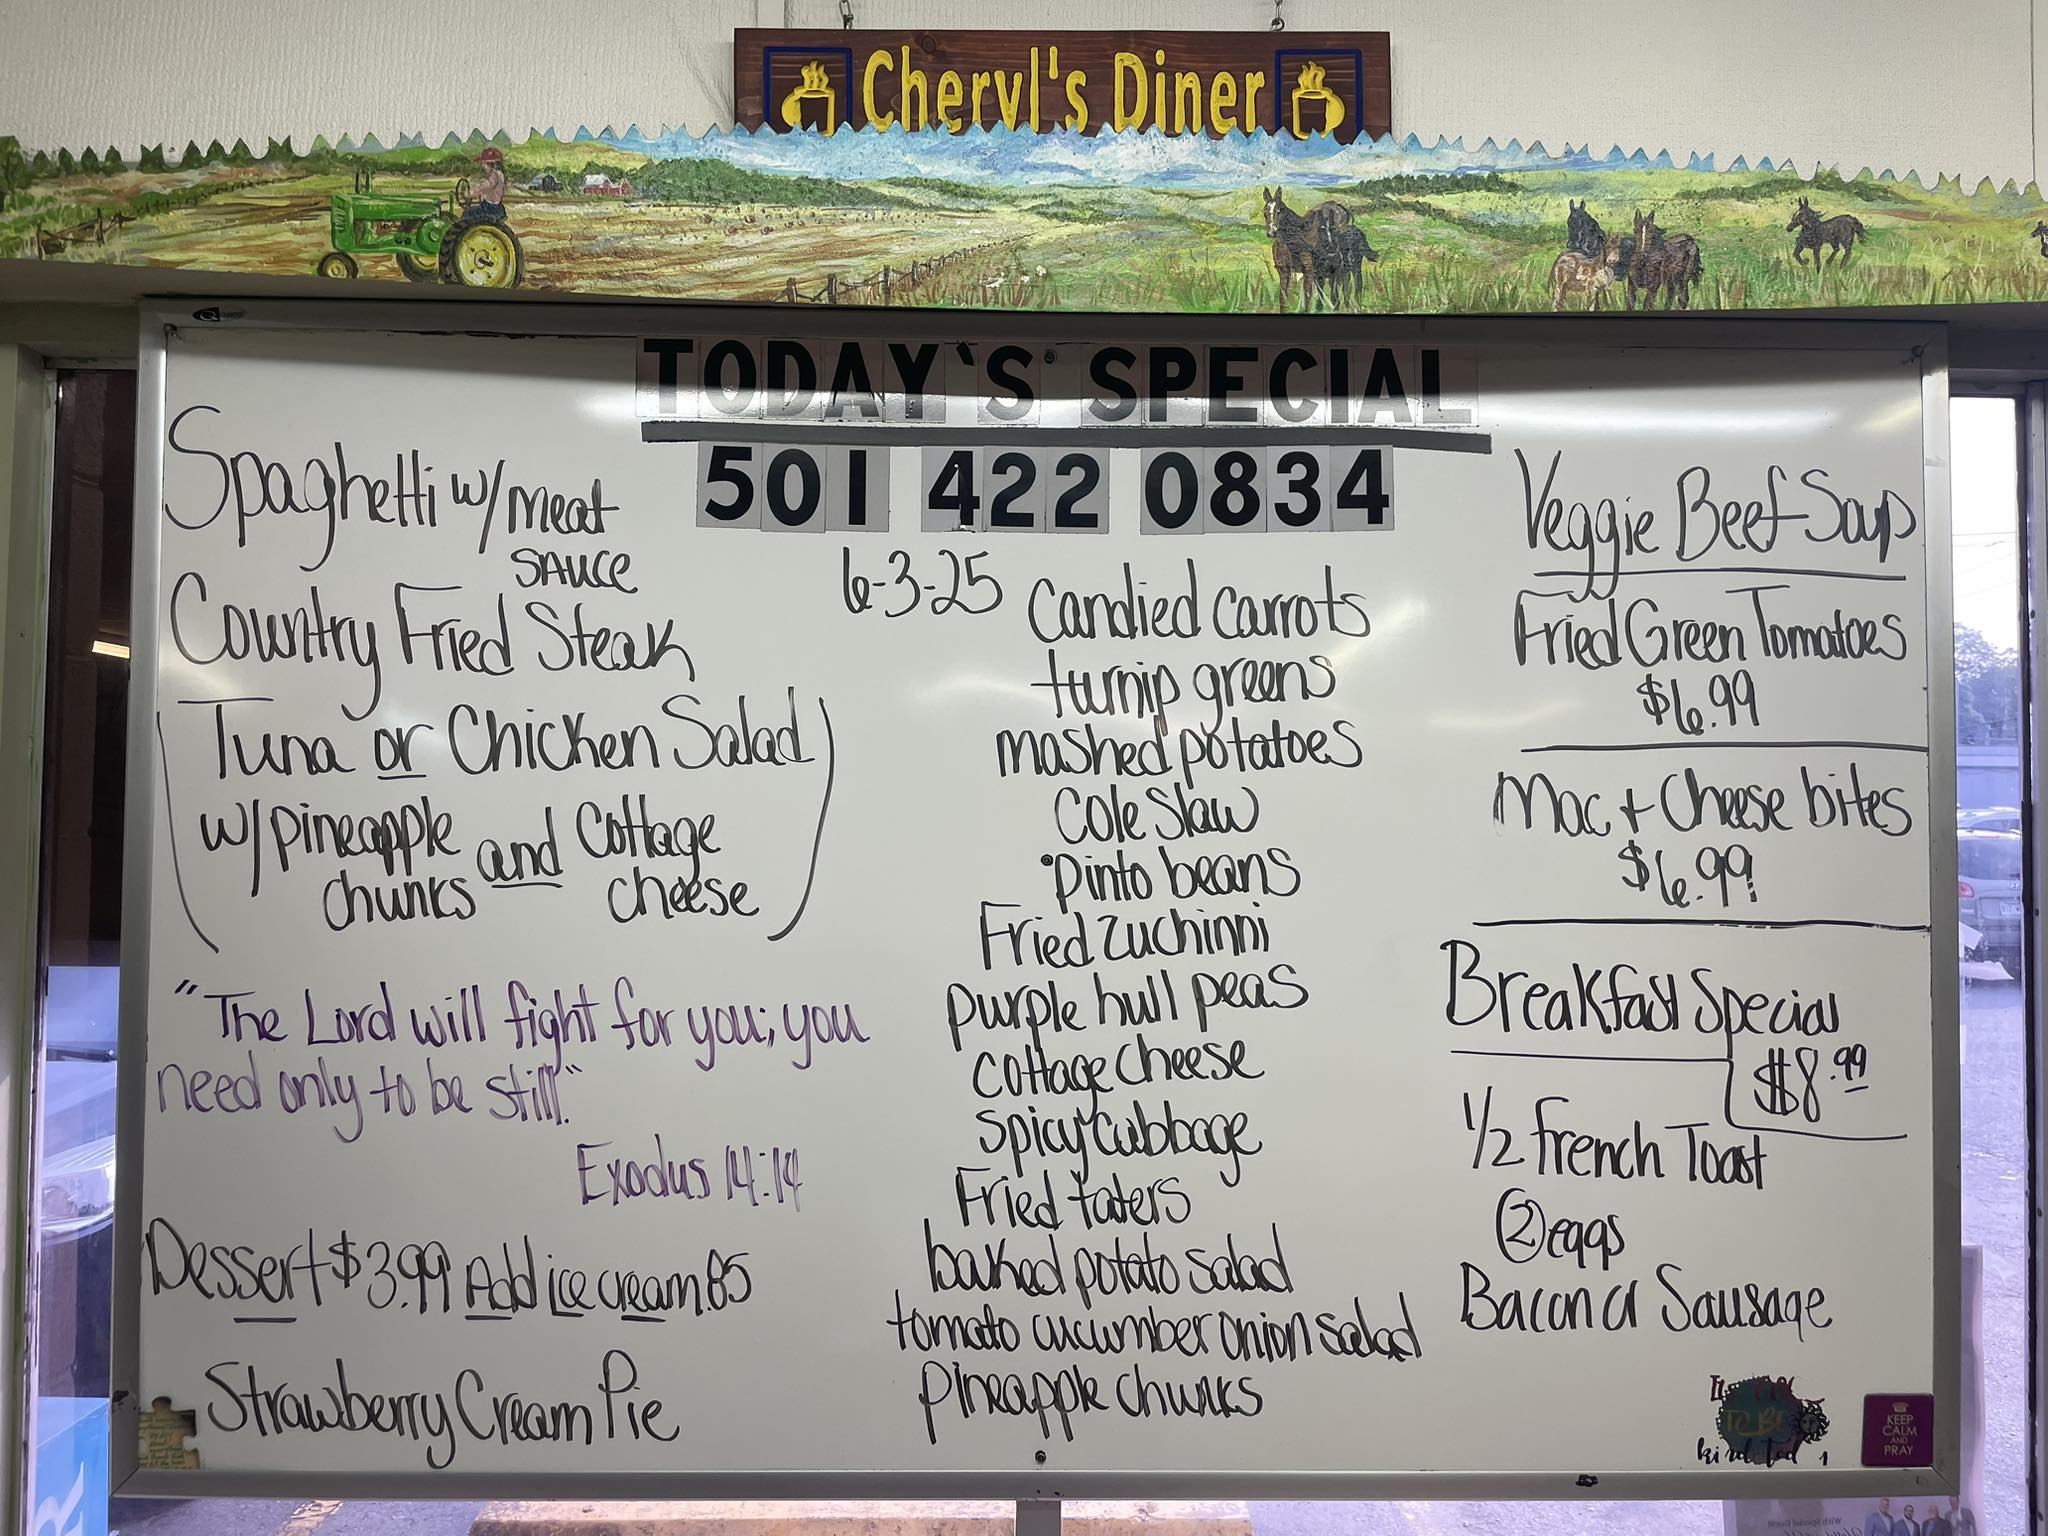 Cheryl's Diner
TODAY'S SPECIAL
501 422 0834
6-3-25
Spaghetti w/ meat
sauce
Country Fried Steak
Tuna or Chicken Salad
w/ pineapple and Cottage
chunks cheese
"The Lord will fight for you; you
need only to be still."
Exodus 14:14
Dessert $3.99 Add ice cream .85
Strawberry Cream Pie
Candied carrots
turnip greens
mashed potatoes
Cole Slaw
Pinto beans
Fried Zuchinni
purple hull peas
cottage cheese
Spicy Cabbage
Fried taters
baked potato salad
tomato cucumber onion salad
pineapple chunks
Veggie Beef Soup
Fried Green Tomatoes
$6.99
Mac + Cheese bites
$6.99
Breakfast Special
$8.99
1/2 French Toast
2 eggs
Bacon or Sausage
TO BE
kind
KEEP
CALM
AND
PRAY
With Special Guest